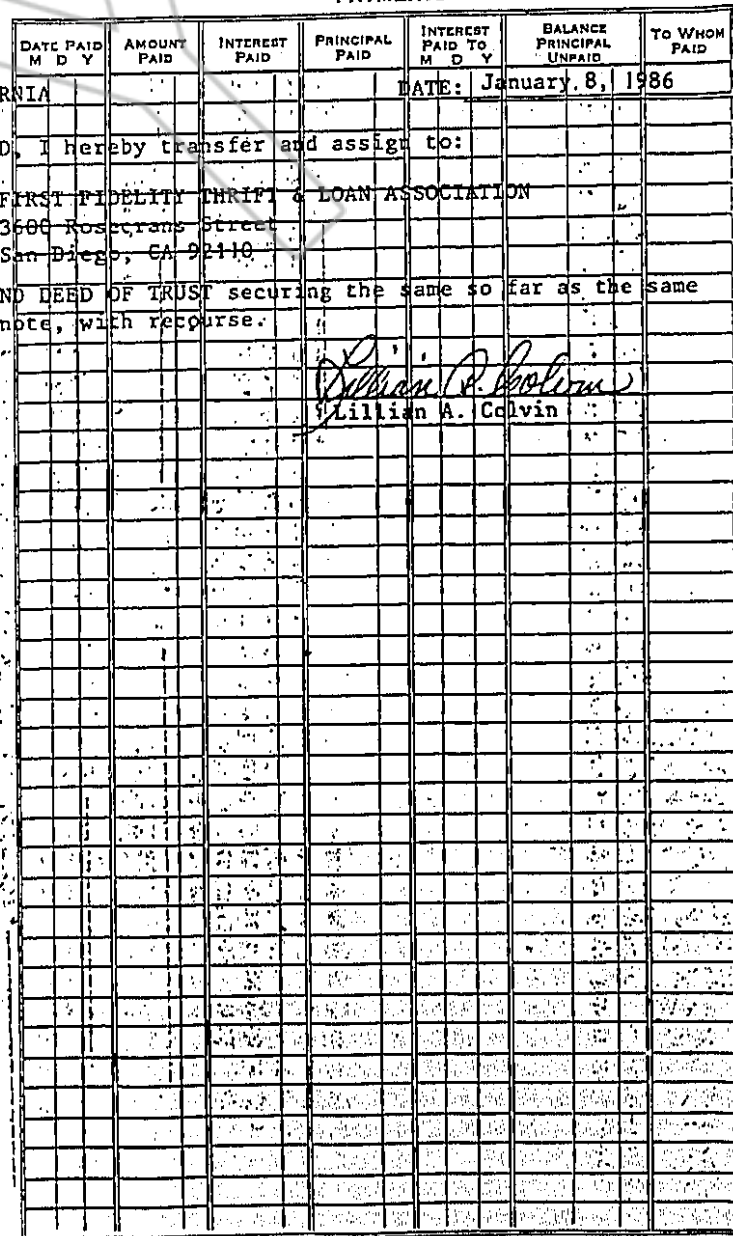 DATE PAID M D Y AMOUNT PAID INTEREST PAID PRINCIPAL PAID INTEREST PAID TO M D Y BALANCE PRINCIPAL UNPAID TO WHOM PAID
RNIA DATE: January 8, 1986
D, I hereby transfer and assign to:
FIRST FIDELITY THRIFT & LOAN ASSOCIATION
3600 Rosecrans Street
San Diego, CA 92110
ND DEED OF TRUST securing the same so far as the same
note, with recourse.
Lillian A. Colvin
Lillian A. Colvin